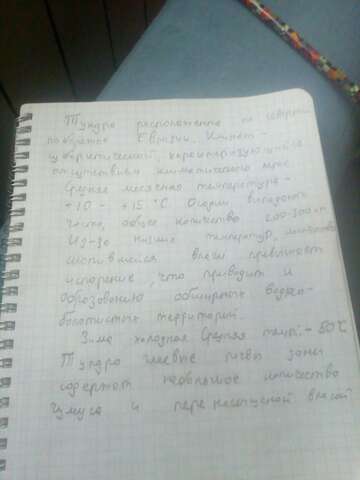 Тундра расположена на северном
побережье Евразии. Климат -
субарктический, характеризующийся
отсутствием климатического лета
Средняя месячная температура -
+10 - +15 °С. Осадки выпадают
часто, общее количество 200-300
Из-за низких температур,
влаги превышает
испарение, что приводит и
образованию обширных водно-
болотистых территорий.
Зима холодная средняя темп. - 50°С
Тундро глеевые почвы зоны
содержат небольшое количество
гумуса и перенасыщеной влагой